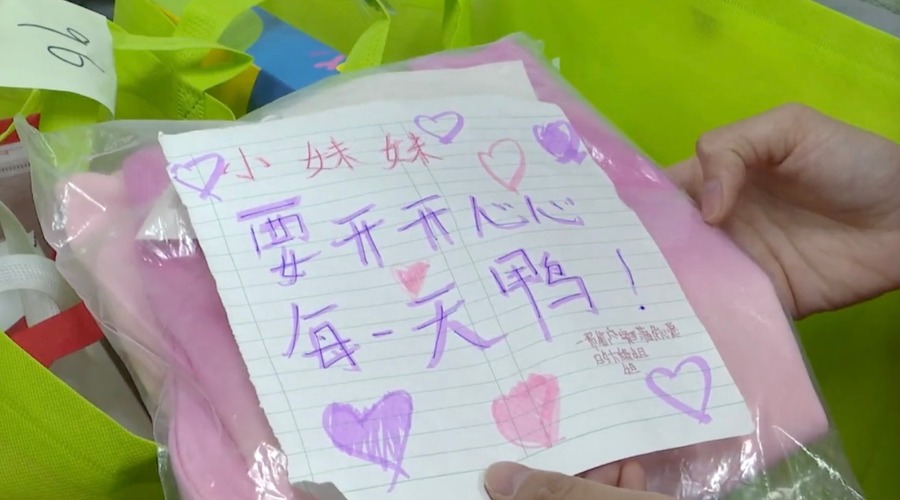 96
小妹妹
要开开心心
每一天鸭！